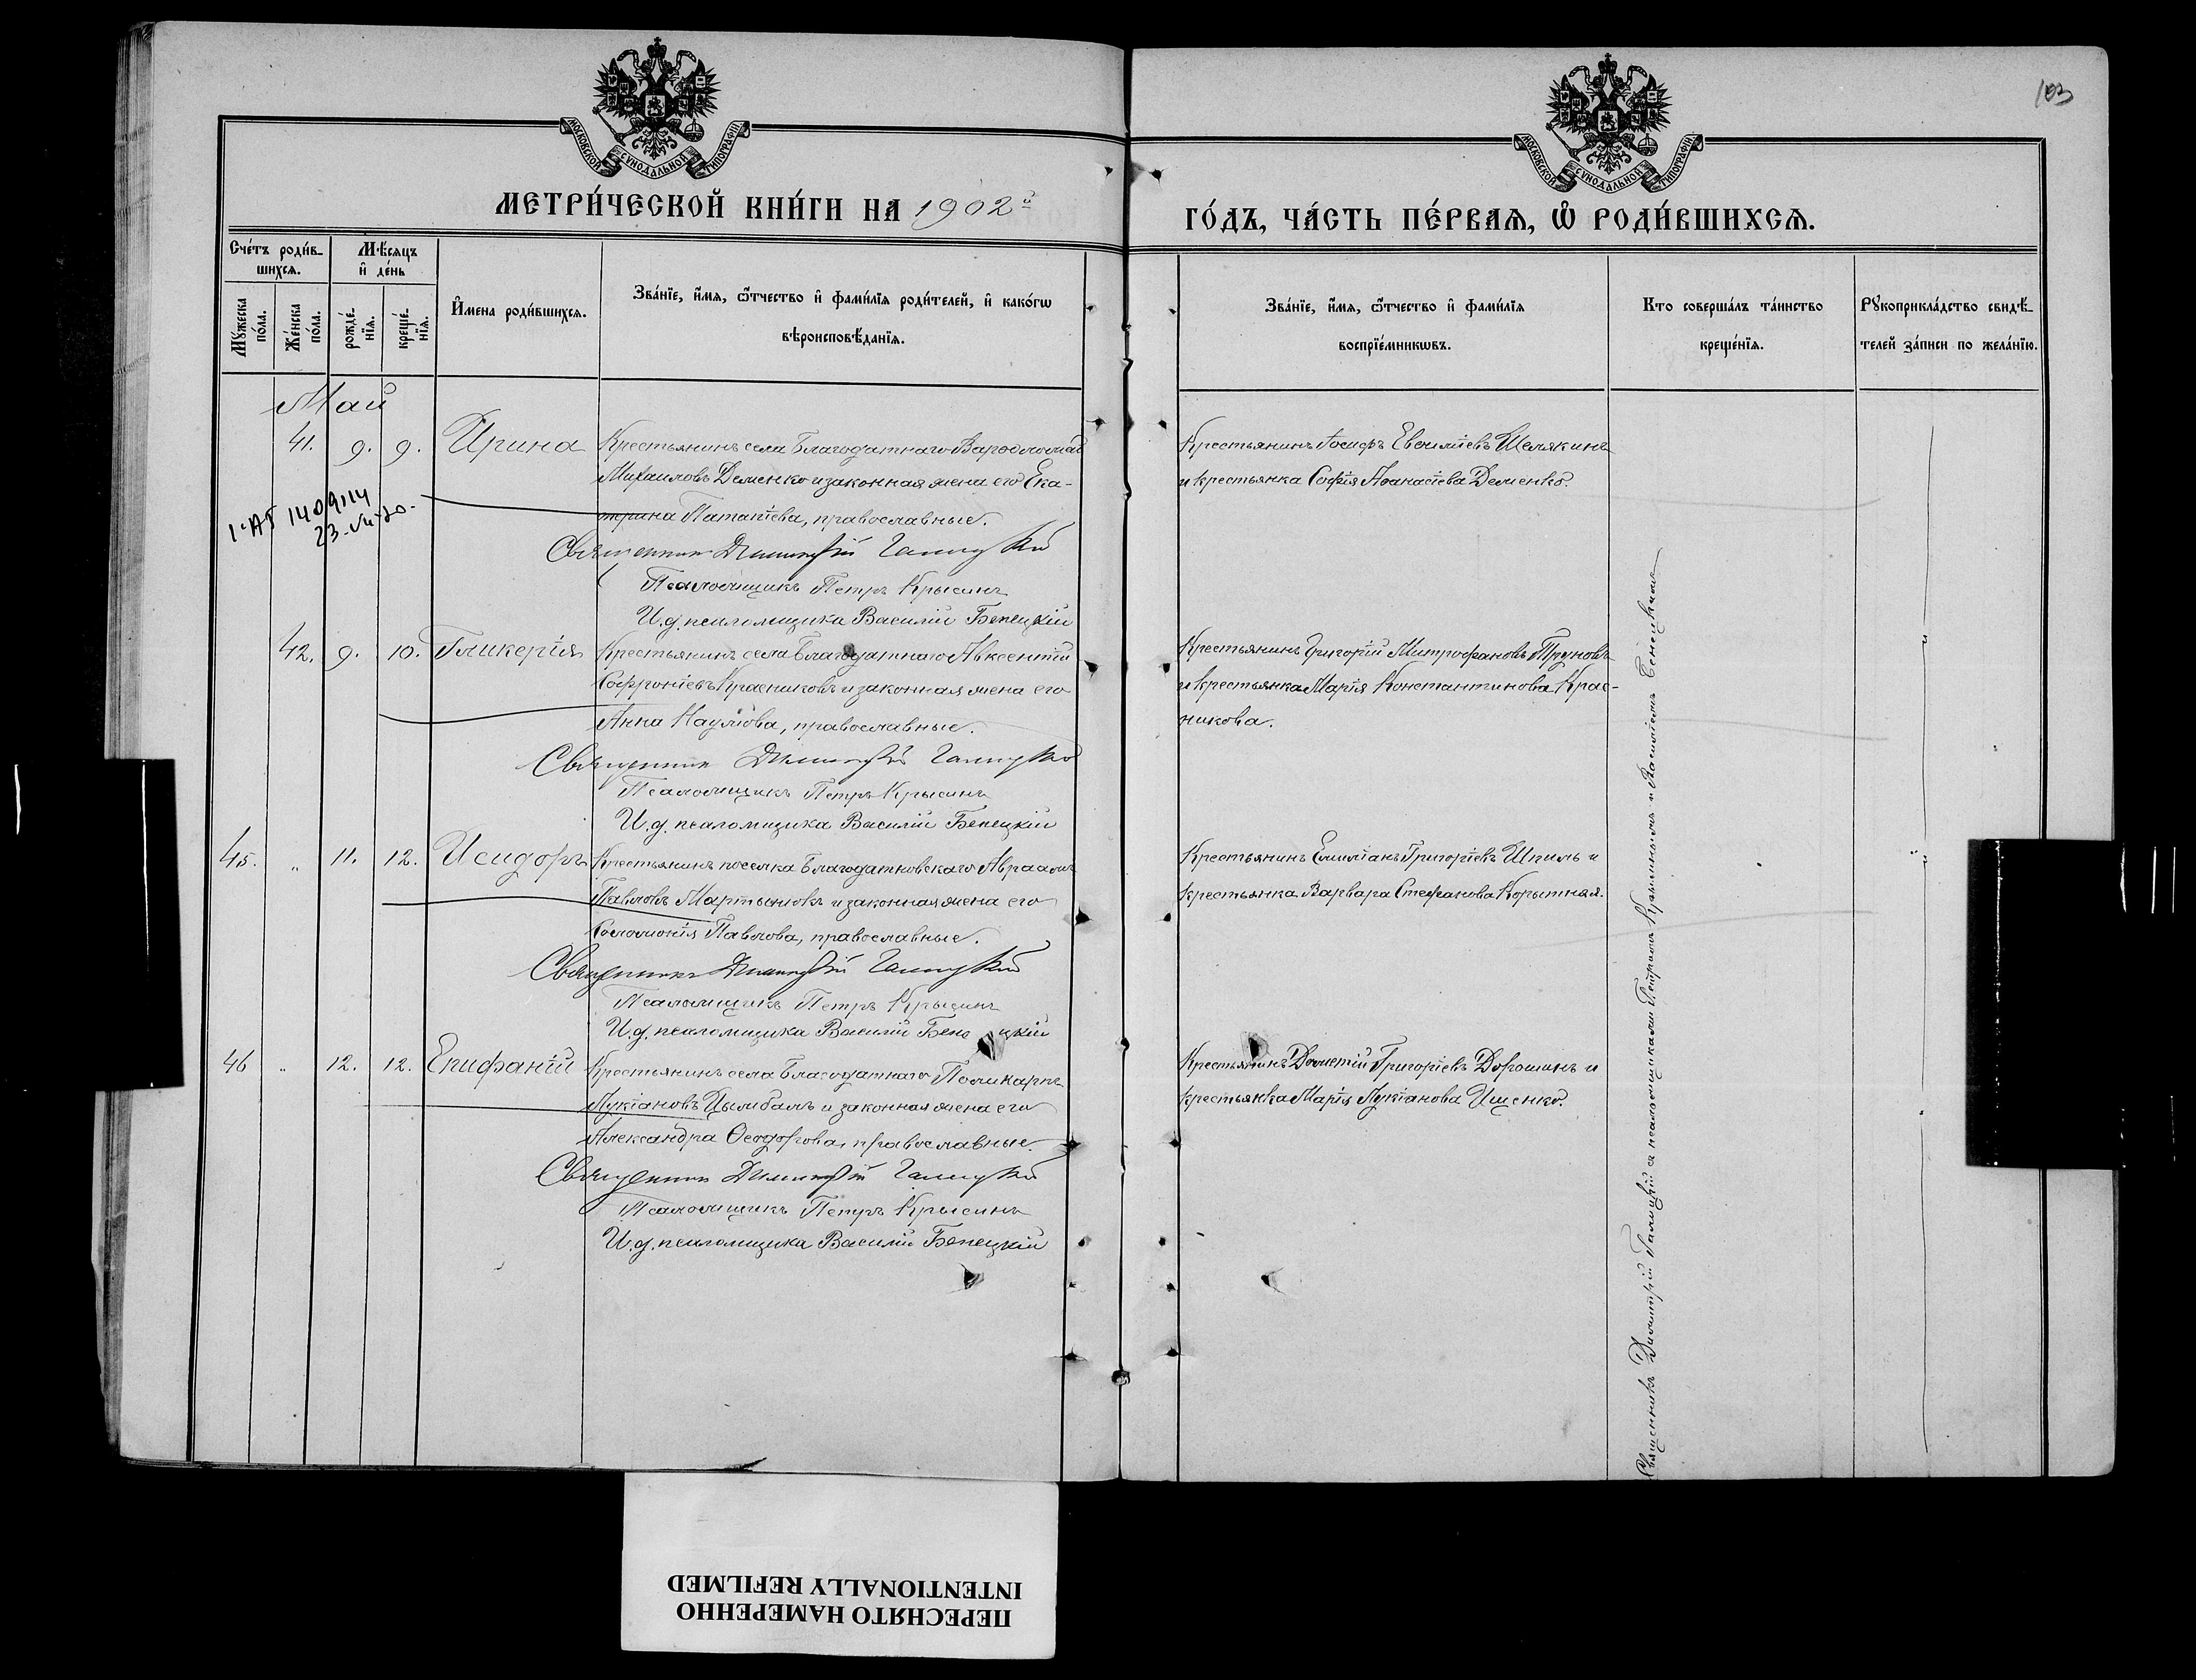 103
МОСКОВСКОЙ СѴНОДАЛЬНОЙ ТИПОГРАФІИ
МОСКОВСКОЙ СѴНОДАЛЬНОЙ ТИПОГРАФІИ
МЕТРИ́ЧЕСКОЙ КНИ́ГИ НА 1902й
ГО́ДЪ, ЧА́СТЬ ПЕ́РВАѦ, Ѡ РОДИ́ВШИХСѦ.
Сче́тъ роди́в-
шихсѧ.
Мѣ́сяцъ
и де́нь
Мꙋ́жеска по́ла.
Же́нска по́ла.
рожде́-
нїѧ.
креще́-
нїѧ.
И҆мена роди́вшихсѧ.
Зва́нїе, и҆́мѧ, ѻ҆́тчество и҆ фами́лїѧ роди́телей, и҆ како́гѡ
вѣроисповѣ́данїѧ.
Зва́нїе, и҆́мѧ, ѻ҆́тчество и҆ фами́лїѧ
воспрїе́мникѡвъ.
Кто соверша́лъ та́инство
креще́нїѧ.
Рꙋкоприкла́дство свидѣ́-
телей за́писи по жела́нїю.
Май
41. 9. 9. Ирина
Крестьянинъ села Благодатнаго Варѳоломей
Михаиловъ Деменко и законная жена его Ека-
терина Патапіева, православные.
Священникъ Димитрій Галицкій
Псаломщикъ Петръ Крысинъ
И.д. псаломщика Василій Бенецкій
Крестьянинъ Іосифъ Евѳиміевъ Шелякинъ
и крестьянка Софія Аѳанасіева Деменко.
1409114
42. 9. 10. Гликерія
Крестьянинъ села Благодатнаго Авксентій
Софроніевъ Красниковъ и законная жена его
Анна Наумова, православные.
Священникъ Димитрій Галицкій
Псаломщикъ Петръ Крысинъ
И.д. псаломщика Василій Бенецкій
Крестьянинъ Григорій Митрофановъ Труновъ
и крестьянка Марія Константинова Крас-
никова.
45. " 11. 12. Исидоръ
Крестьянинъ поселка Благодатновскаго Авраамъ
Павловъ Мартыновъ и законная жена его
Соломонія Павлова, православные.
Священникъ Димитрій Галицкій
Псаломщикъ Петръ Крысинъ
И.д. псаломщика Василій Бенецкій
Крестьянинъ Емиліанъ Григоріевъ Шпиль и
крестьянка Варвара Стефанова Корытная.
46 " 12. 12. Епифаній
Крестьянинъ села Благодатнаго Поликарпъ
Лукіановъ Цымбалъ и законная жена его
Александра Ѳеодорова, православные.
Священникъ Димитрій Галицкій
Псаломщикъ Петръ Крысинъ
И.д. псаломщика Василій Бенецкій
Крестьянинъ Дометій Григоріевъ Дорошинъ и
крестьянка Марія Лукіанова Ищенко.
Священникъ Димитрій Галицкій съ псаломщиками Петромъ Крысинымъ и Василіемъ Бенецкимъ
ПЕРЕСНЯТО НАМЕРЕННО
INTENTIONALLY REFILMED